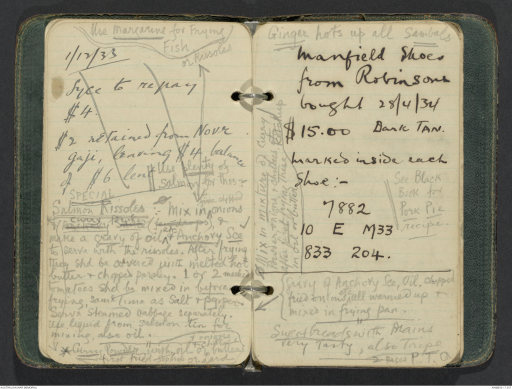 Use Margarine for Frying
Fish
or Rissoles
1/12/33
Syce to repay
$4.
$2 retained from Novr.
gaji, leaving $4 balance
of $6 lent
Use plenty of
Salmon for this
SPECIAL
Salmon Rissoles :- Mix in onions
make a gravy of oil & Anchovy Sce
to serve with the rissoles. After frying
they shd be covered with melted hot
butter & chopped parsley. 1 or 2 mashed
tomatoes shd be mixed in before
frying, same time as Salt & pepper.
Serve steamed cabbage separately.
Use liquid from Salmon tin for
mixing, also oil.
* Curry Powder with oil or butter
first fried in ghee or lard
Ginger hots up all Sambals
Manfield Shoes
from Robinsons
bought 28/4/34
$15.00 Dark TAN.
marked inside each
Shoe:-
7882
10 E M33
833 204.
See Black
Bick for
Pork Pie
recipe.
Gravy of Anchovy Sce, Oil, chopped
fried onions all warmed up &
mixed in frying pan.
Sweetbreads with Brains
Very Tasty, also Tripe
P.T.O.